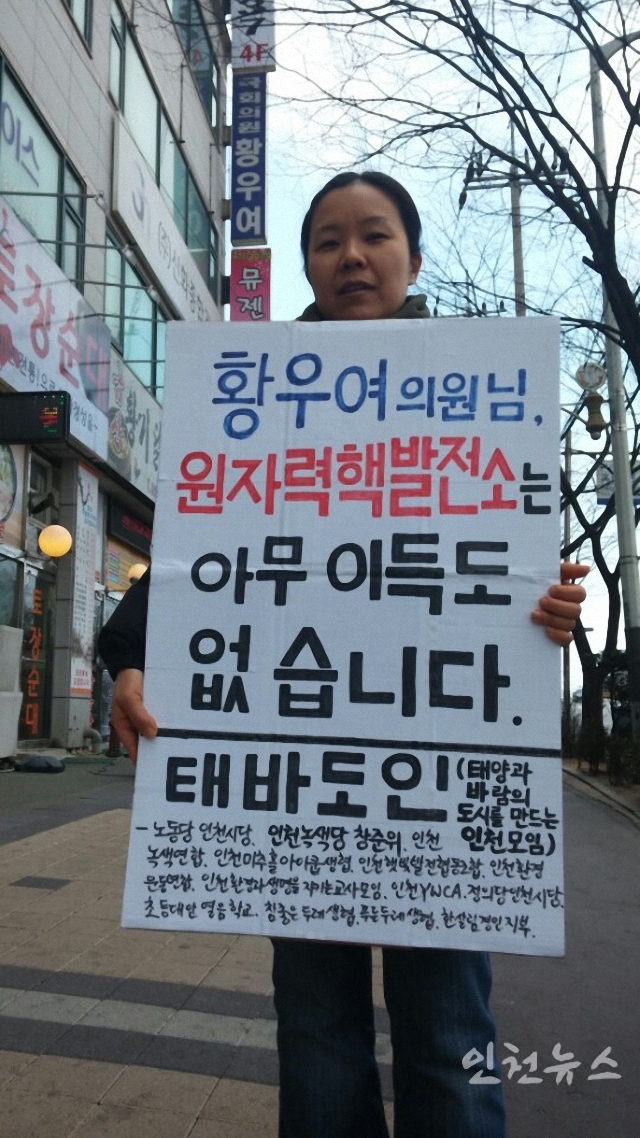 4F
국회의원 황우여
뮤젠
이스
(주)신화종합
토장순대
토장순대
황우여 의원님,
원자력핵발전소는
아무 이득도
없습니다.
태바도인 (태양과
바람의
도시를 만드는
인천모임)
- 노동당 인천시당, 인천녹색당 창준위, 인천
녹색연합, 인천미추홀아이쿱생협, 인천햇빛발전협동조합, 인천환경
운동연합, 인천환경과생명을지키는교사모임, 인천YWCA, 정의당인천시당,
초등대안 열음학교, 참좋은두레생협, 푸른두레생협, 한살림경인지부.
인천뉴스